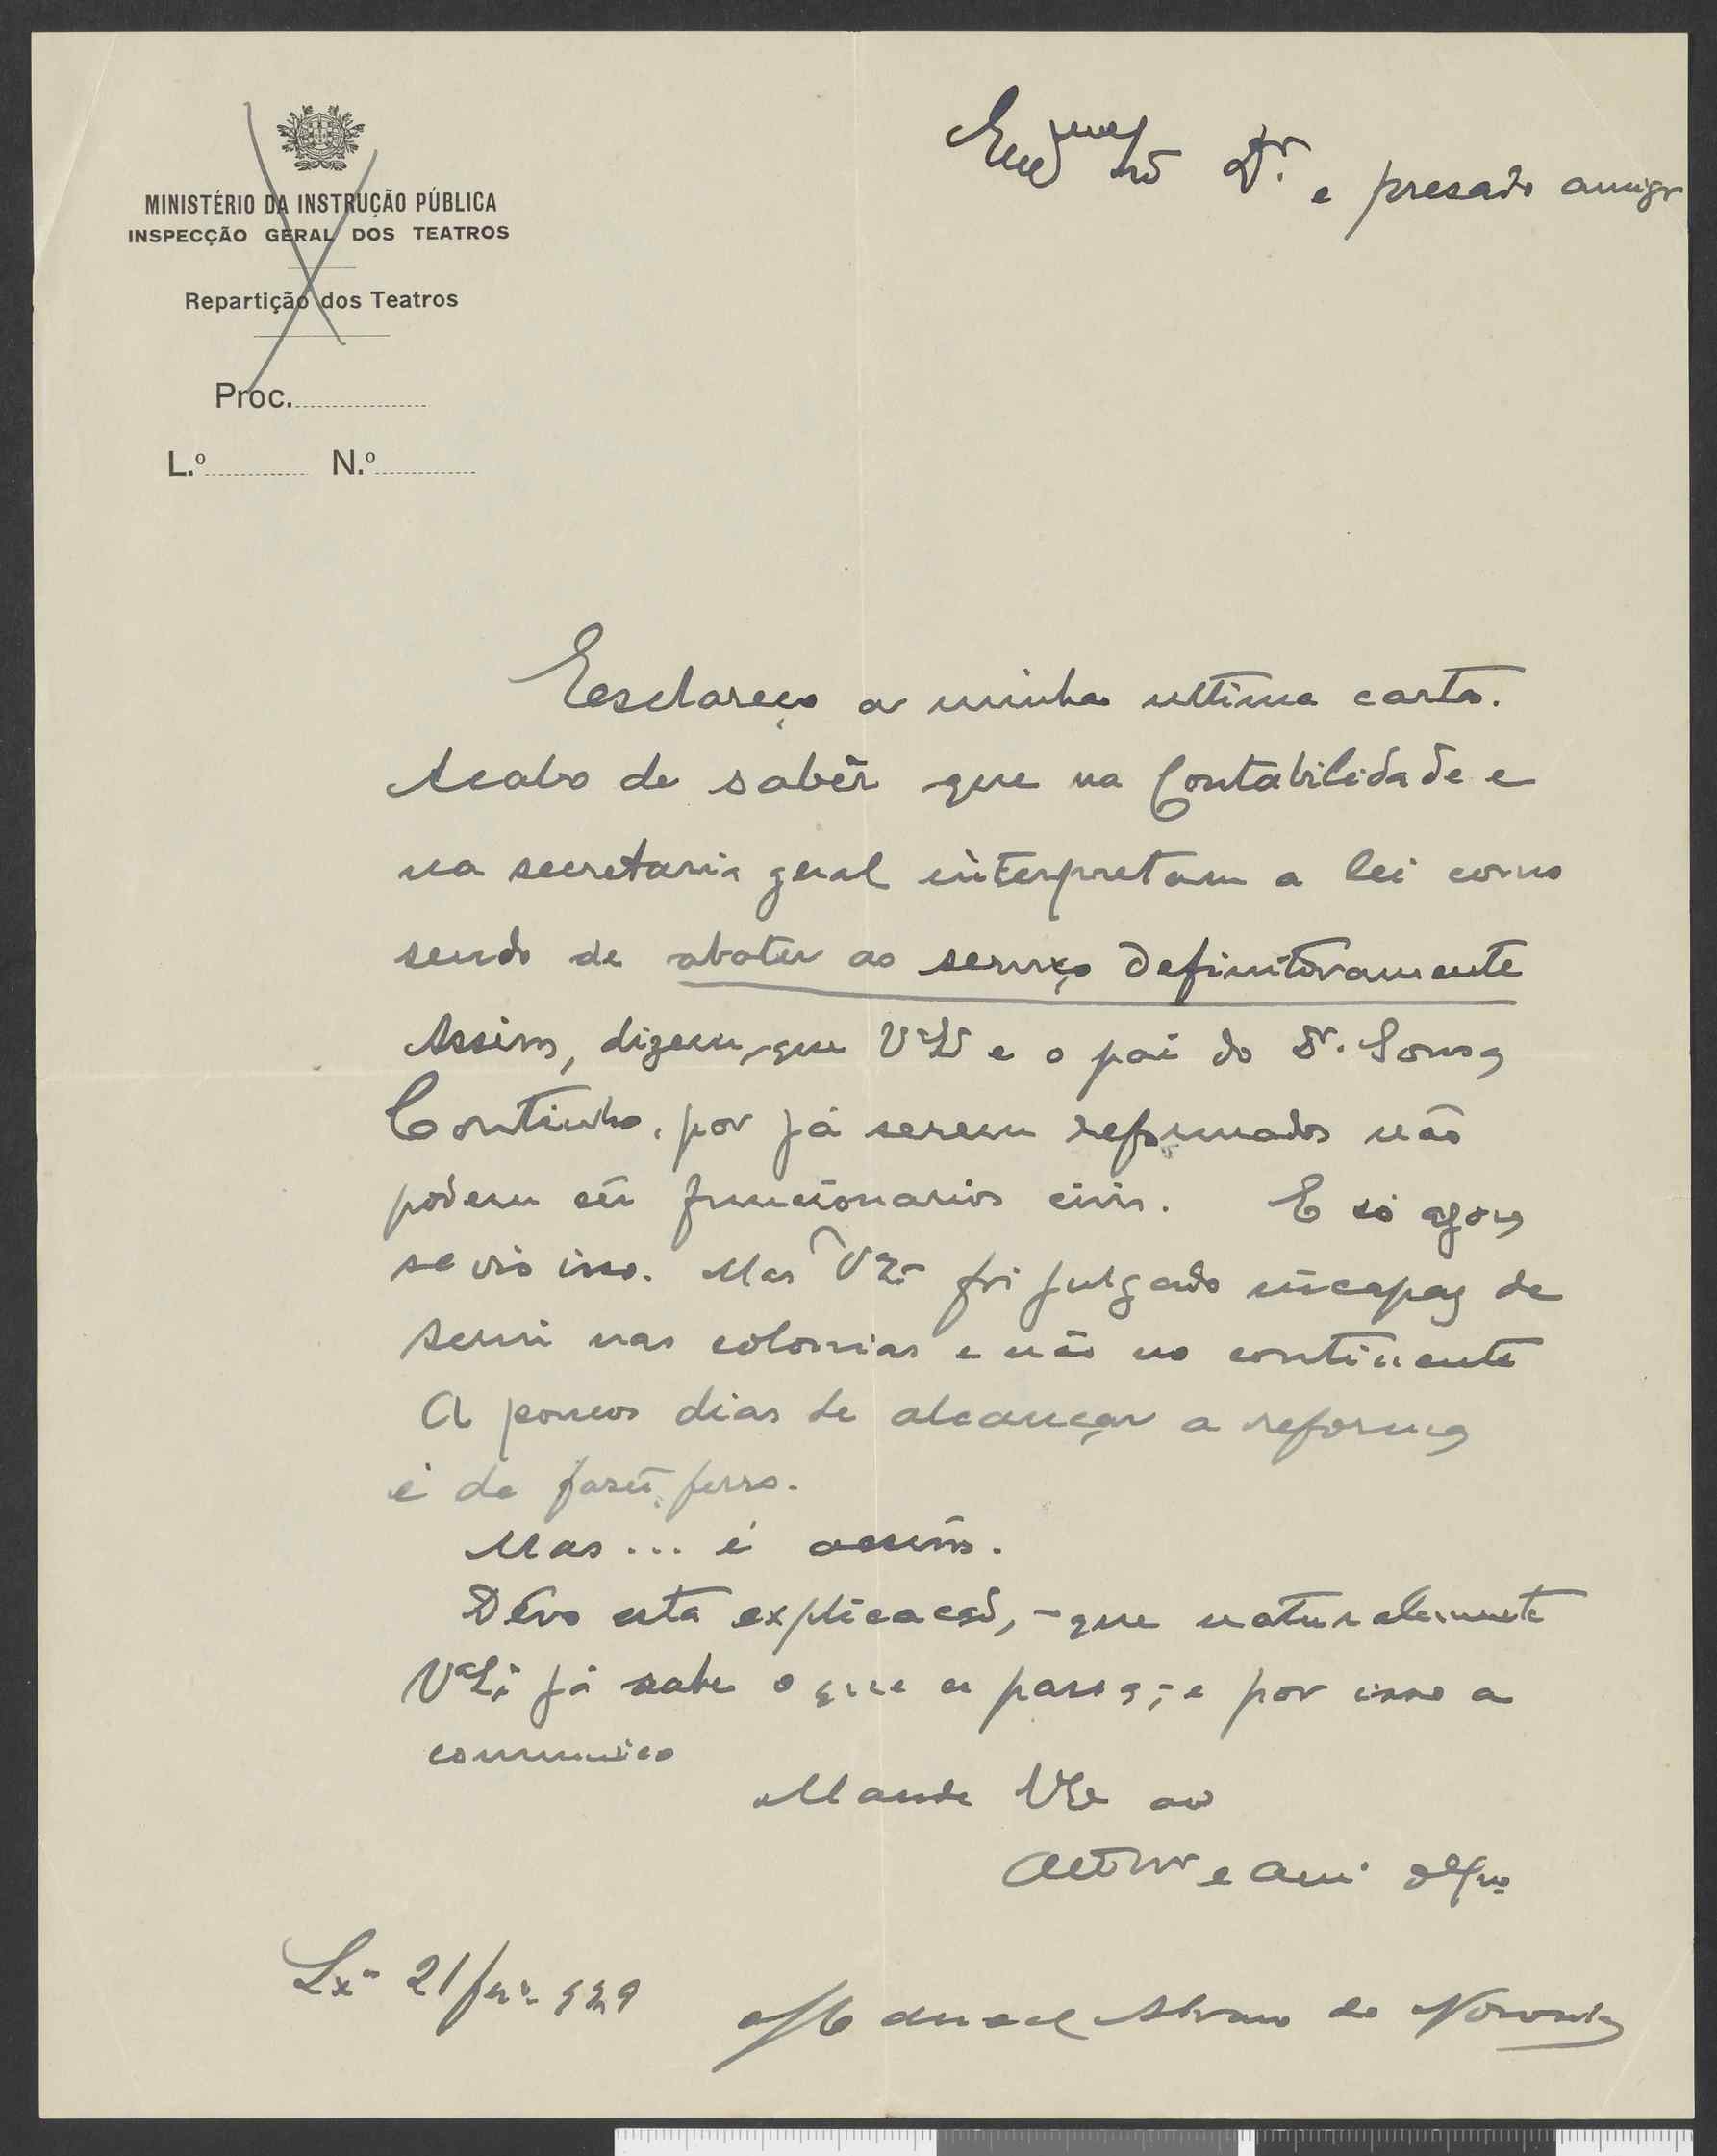 MINISTÉRIO DA INSTRUÇÃO PÚBLICA
INSPECÇÃO GERAL DOS TEATROS
Repartição dos Teatros
Proc.
L.º N.º
Dr. e presado amigo
Esclareço a minha ultima carta.
Acabo de sabêr que na Contabilidade e
na secretaria geral interpretam a lei como
sendo de abater ao serviço definitivamente
Assim, dizem, que V.ª Ex.ª e o pai do Dr. Sousa
Coutinho, por já serem reformados não
podem ser funcionarios civis. E só agora
se viu isso. Mas V. Ex.ª foi julgado incapaz de
servir nas colonias e não no continente
A poucos dias de alcançar a reforma
é de fazer ferro.
Mas... é assim.
Dévo esta explicação, - que naturalmente
V.ª Ex.ª já sabe o que se passa, - e por isso a
communico
Mande V. Ex.ª ao
Lx.ª 21 fev.º 929
Manuel Alvaro de Noronha